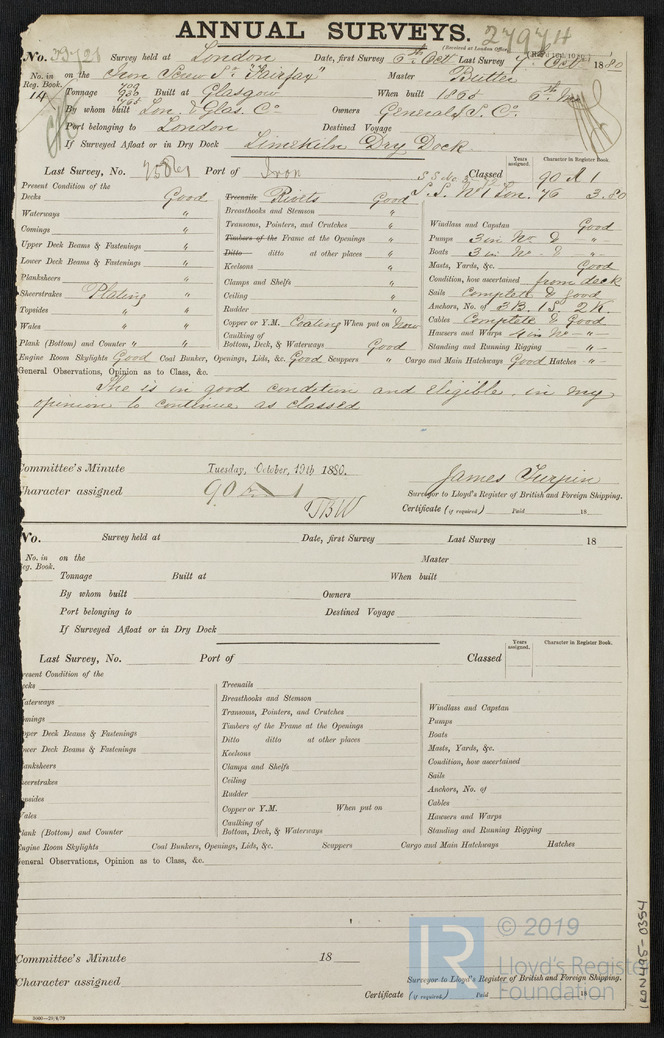 ANNUAL SURVEYS. 27974
(Received at London Office
No. 33721 Survey held at London Date, first Survey 6th Oct Last Survey 7 Oct 1880
No. in Reg. Book. on the Iron Screw Sr. "Fairfax" Master Butter
14 Tonnage Built at Glasgow When built 1865
By whom built Lon. & Glas. Co. Owners General S. Co.
Port belonging to London Destined Voyage
If Surveyed Afloat or in Dry Dock Limekiln Dry Dock
Years assigned. Character in Register Book.
Last Survey, No. Port of Iron Classed 90 A 1
S.S. No 1 Lon. 76 3.80
Present Condition of the
Decks Good
Waterways "
Comings "
Upper Deck Beams & Fastenings "
Lower Deck Beams & Fastenings "
Planksheers "
Sheerstrakes Plating "
Topsides " "
Wales " "
Plank (Bottom) and Counter " "
Treenails Rivets Good
Breasthooks and Stemson "
Transoms, Pointers, and Crutches "
Timbers of the Frame at the Openings "
Ditto ditto at other places "
Keelsons "
Clamps and Shelfs "
Ceiling "
Rudder "
Copper or Y.M. Coating When put on Now
Caulking of Bottom, Deck, & Waterways Good
Windlass and Capstan Good
Pumps 3 in No. & "
Boats 3 in No. & "
Masts, Yards, &c. Good
Condition, how ascertained from deck
Sails Complete & Good
Anchors, No. of 3B. 1S. 2K.
Cables Complete & Good
Hawsers and Warps 4 in No - "
Standing and Running Rigging - " -
Engine Room Skylights Good Coal Bunker, Openings, Lids, &c. Good Scuppers " Cargo and Main Hatchways Good Hatches - " -
General Observations, Opinion as to Class, &c.
She is in good condition and eligible, in my
opinion to continue as classed
Committee's Minute Tuesday, October, 19th 1880.
James Turpin
Character assigned 90 A 1
Surveyor to Lloyd's Register of British and Foreign Shipping.
TBW
Certificate (if required) Paid 18
No. Survey held at Date, first Survey Last Survey 18
No. in Reg. Book. on the Master
Tonnage Built at When built
By whom built Owners
Port belonging to Destined Voyage
If Surveyed Afloat or in Dry Dock
Years assigned. Character in Register Book.
Last Survey, No. Port of Classed
resent Condition of the
ecks
aterways
omings
pper Deck Beams & Fastenings
wer Deck Beams & Fastenings
anksheers
eerstrakes
psides
ales
lank (Bottom) and Counter
Treenails
Breasthooks and Stemson
Transoms, Pointers, and Crutches
Timbers of the Frame at the Openings
Ditto ditto at other places
Keelsons
Clamps and Shelfs
Ceiling
Rudder
Copper or Y.M. When put on
Caulking of Bottom, Deck, & Waterways
Windlass and Capstan
Pumps
Boats
Masts, Yards, &c.
Condition, how ascertained
Sails
Anchors, No. of
Cables
Hawsers and Warps
Standing and Running Rigging
ngine Room Skylights Coal Bunkers, Openings, Lids, &c. Scuppers Cargo and Main Hatchways Hatches
eneral Observations, Opinion as to Class, &c.
Committee's Minute 18
Character assigned
Surveyor to Lloyd's Register of British and Foreign Shipping.
Certificate (if required) Paid 18
5000—20/6/79
LR © 2019
Lloyd's Register
Foundation
IRON495-0354